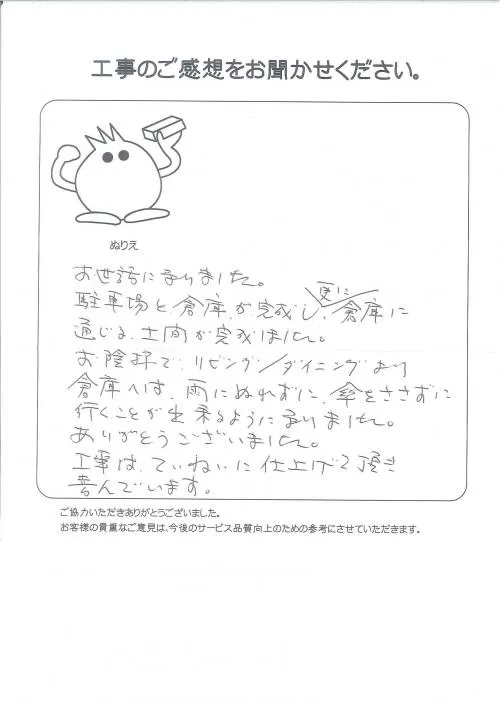 工事のご感想をお聞かせください。
ぬりえ
お世話になりました。
駐車場と倉庫が完成し、更に倉庫に
通じる土間が完成しました。
お陰様で、リビング/ダイニングより
倉庫へは、雨にぬれずに、傘をささずに
行くことが出来るようになりました。
ありがとうございました。
工事は、ていねいに仕上げて頂き
喜んでいます。
ご協力いただきありがとうございました。
お客様の貴重なご意見は、今後のサービス品質向上のための参考にさせていただきます。